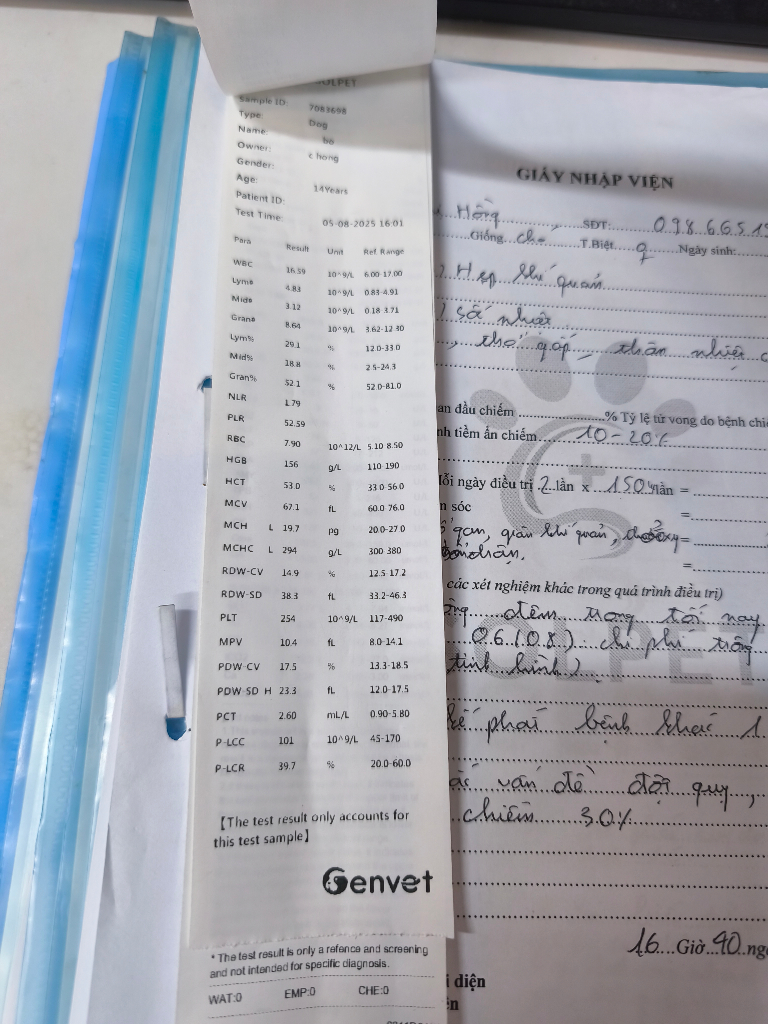 OLPET
Sample ID: 7083698
Type: Dog
Name: bo
Owner: c hong
Gender:
Age: 14Years
Patient ID:
Test Time: 05-08-2025 16:01
Para Result Unit Ref. Range
WBC 16.59 10^9/L 6.00-17.00
Lym# 4.83 10^9/L 0.83-4.91
Mid# 3.12 10^9/L 0.18-3.71
Gran# 8.64 10^9/L 3.62-12.30
Lym% 29.1 % 12.0-33.0
Mid% 18.8 % 2.5-24.3
Gran% 52.1 % 52.0-81.0
NLR 1.79
PLR 52.59
RBC 7.90 10^12/L 5.10-8.50
HGB 156 g/L 110-190
HCT 53.0 % 33.0-56.0
MCV 67.1 fL 60.0-76.0
MCH L 19.7 pg 20.0-27.0
MCHC L 294 g/L 300-380
RDW-CV 14.9 % 12.5-17.2
RDW-SD 38.3 fL 33.2-46.3
PLT 254 10^9/L 117-490
MPV 10.4 fL 8.0-14.1
PDW-CV 17.5 % 13.3-18.5
PDW-SD H 23.3 fL 12.0-17.5
PCT 2.60 mL/L 0.90-5.80
P-LCC 101 10^9/L 45-170
P-LCR 39.7 % 20.0-60.0
【The test result only accounts for
this test sample】
Genvet
* The test result is only a refence and screening
and not intended for specific diagnosis.
WAT:0 EMP:0 CHE:0
GIẤY NHẬP VIỆN
Hồng SĐT: 098665
Giống chó T.Biệt ♀ Ngày sinh:
Hẹp khí quản
số nhiệt
, thở gấp, thân nhiệt
an đầu chiếm % Tỷ lệ tử vong do bệnh
nh tiềm ẩn chiếm 10-20%
ỗi ngày điều trị 2 lần x 150k/lần =
sóc =
gan, giãn khí quản, =
=
các xét nghiệm khác trong quá trình điều trị)
đêm trong tối nay
06/08) chi phí
tình hình)
kế phát bệnh khác
vấn đề đột quỵ,
chiếm 30%
OLPET
16 Giờ 40
i diện
ện